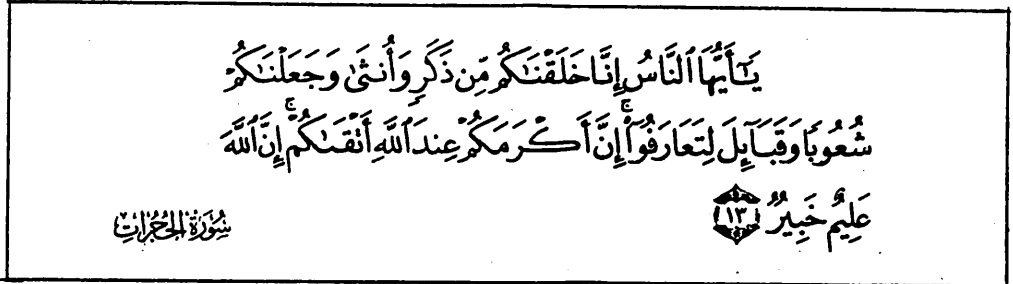 يَٰٓأَيُّهَا ٱلنَّاسُ إِنَّا خَلَقْنَٰكُم مِّن ذَكَرٍ وَأُنثَىٰ وَجَعَلْنَٰكُمْ
شُعُوبًا وَقَبَآئِلَ لِتَعَارَفُوٓا۟ ۚ إِنَّ أَكْرَمَكُمْ عِندَ ٱللَّهِ أَتْقَىٰكُمْ ۚ إِنَّ ٱللَّهَ
عَلِيمٌ خَبِيرٌ ١٣
سُورَةُ الحُجُرَاتِ